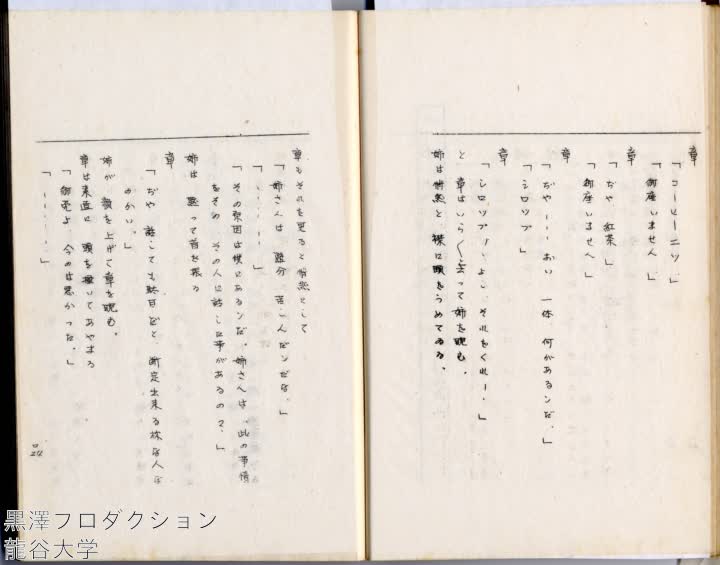 章
「コーヒー二ツ」
「御座いません」
章
「ぢや 紅茶」
「御座いませへ」
章
「ぢや・・・おい 一体 何があるンだ。」
「シロップ」
章
「シロップ・・よし それをくれー。」
と 章はいら〱云って姉を睨む。
姉は悄然と 襟に頭をうめてゐる。
章もそれを見ると悄然として
「姉さんは 随分 苦しんだンだな。」
「・・・・・」
「その原因は僕にあるンだ。姉さんは、此の事情
をその その人に話した事があるのマ。」
姉は 黙って首を振る
章
「ぢや 話しても駄目だと 断定出来る様な人な
のかい。」
姉が 顔を上げて章を睨む。
章は素直に 頭を掻いてあやまる
「御免よ 今のは悪かった。」
「・・・・・」
ロ
24
黒澤プロダクション
龍谷大学